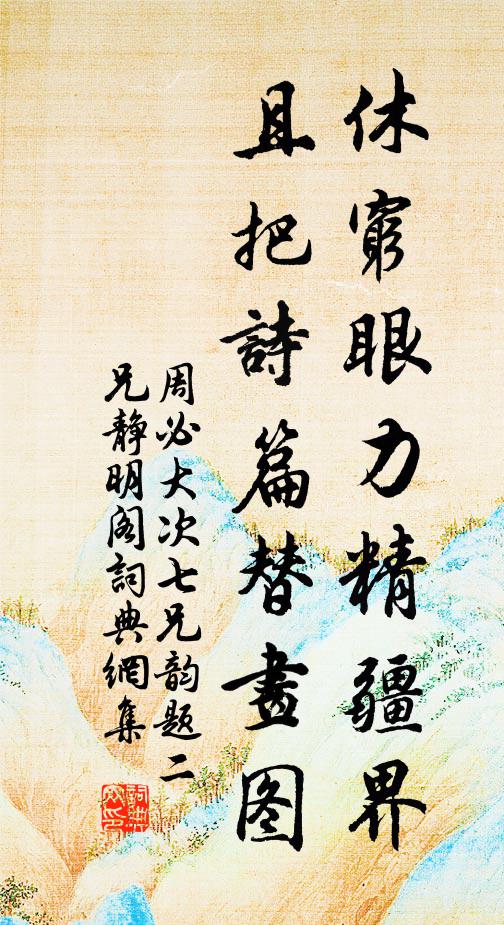 休窮眼力精疆界
且把詩篇替畫图
周必大次七兄韵题二
兄靜明阁詞典網集